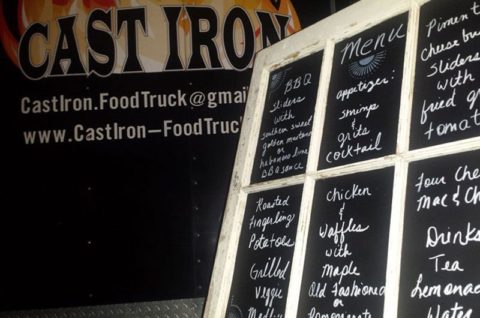 CAST IRON
CastIron.FoodTruck@gmai
www.CastIron-FoodTruc
BBQ
Sliders
with
southern sweet
golden mustard
or
habanero lime
BBQ sauce
Menu
appetizer:
shrimp
&
grits
cocktail
Pimen
cheese bu
Sliders
with
fried g
tomat
Roasted
Fingerling
Potatoes
Grilled
Veggie
Chicken
&
Waffles
with
Maple
Old Fashioned
or
Four Che
Mac & Ch
Drinks
Tea
Lemonad
Water